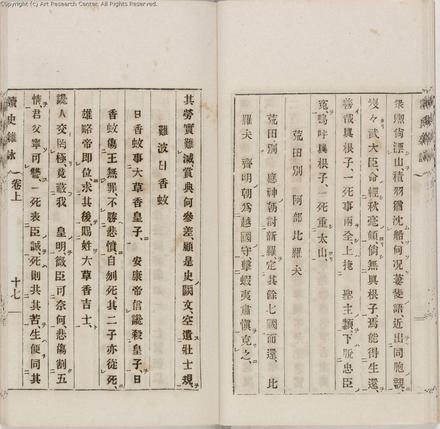 Copyright (c) Art Research Center. All Rights Reserved.
衆煦倘漂山積羽嘗沈船何況萋斐語近出同胞親
受々武大臣命輕秋毫傾倘無眞根子焉能得生還
善哉眞根子一死事兩全上掩 聖主顙下脈忠臣
寃嗚呼眞根子一死重太山
荒田別 阿部比羅夫
荒田別 應神朝討新羅定其餘七國而還 比
羅夫 齊明朝爲越國守擊蝦夷肅愼克之
其勞實難減賞典何參差顧是史闕文空遺壯士規
難波日香蚊
日香蚊事大草香皇子 安康帝信讒殺皇子日
香蚊傷王無罪不勝悲憤自刎死其二子亦從死
雄略帝即位求其後賜姓大草香吉士
讒人交罔極竟蔽我 皇明微臣可奈何悲傷割五
情君父寧可讐一死表臣誠死則共其苦生便同其
讀史雜詠 卷上 十七